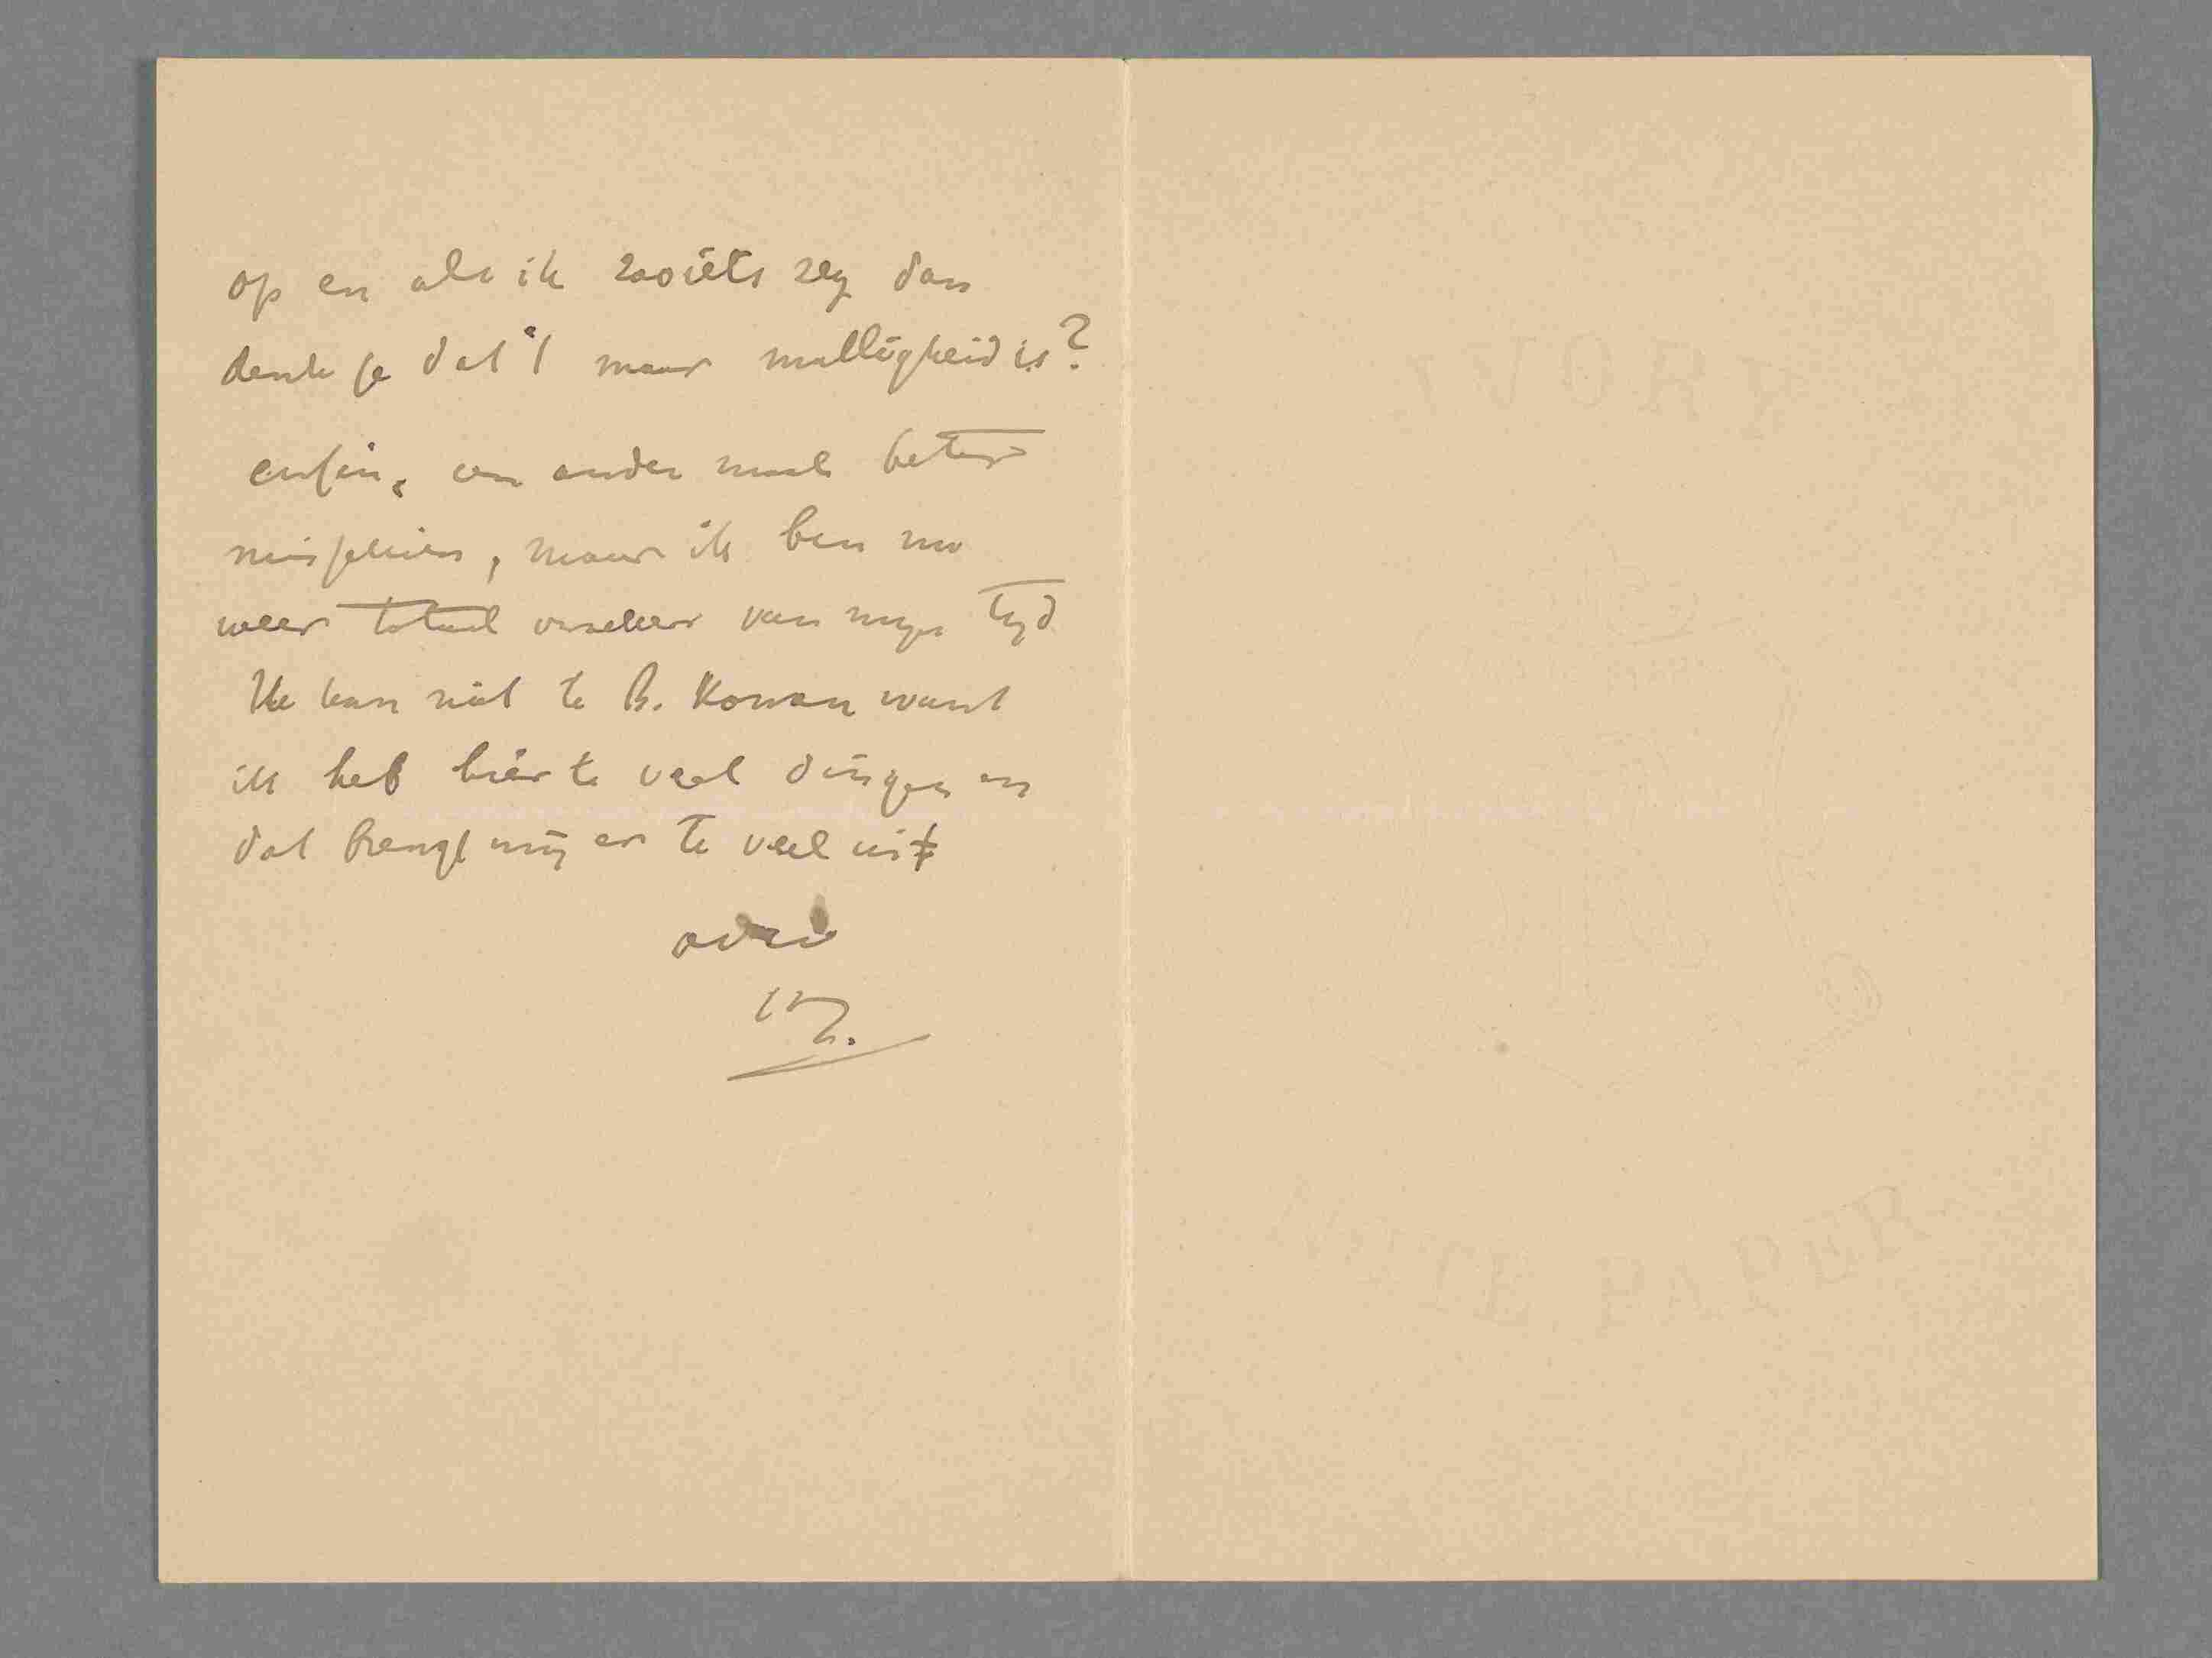 op en als ik zooiets zeg dan
denk je dat 't maar malligheid is?
enfin, een ander maal beter
misschien, maar ik ben nu
weer totaal onzeker van mijn tijd
Ik kan niet te B. komen want
ik heb hier te veel dingen en
dat brengt mij er te veel uit
adieu
IVORY
NOTE PAPER